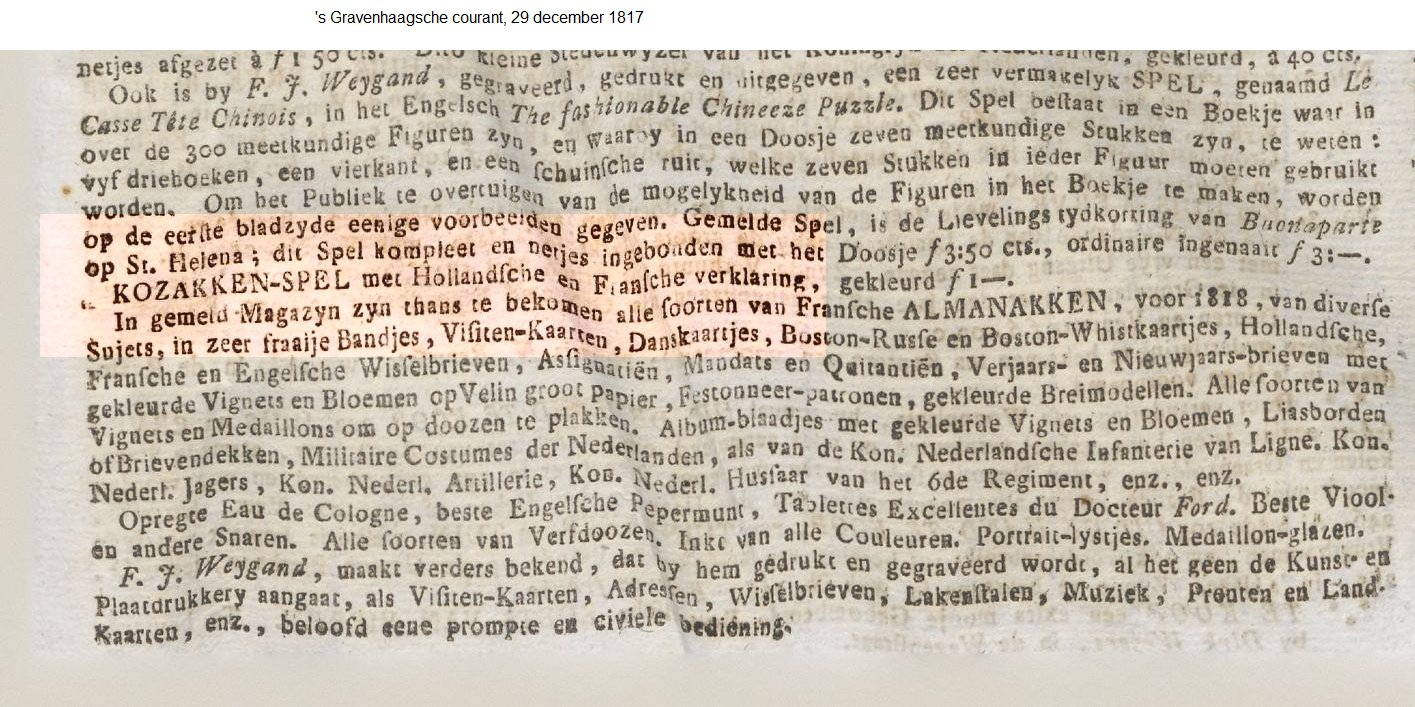 's Gravenhaagsche courant, 29 december 1817
netjes afgezet à f 1 50 cts. Dito kleine Stedenwyzer van het Koningryk der Nederlanden, gekleurd, à 40 cts.
Ook is by F. J. Weygand, gegraveerd, gedrukt en uitgegeven, een zeer vermakelyk SPEL, genaamd Le
Casse Tête Chinois, in het Engelsch The fashionable Chineeze Puzzle. Dit Spel beſtaat in een Boekje waar in
over de 300 meetkundige Figuren zyn, en waar by in een Doosje zeven meetkundige Stukken zyn, te weten:
vyf driehoeken, een vierkant, en een ſchuinſche ruit, welke zeven Stukken in ieder Figuur moeten gebruikt
worden. Om het Publiek te overtuigen van de mogelykheid van de Figuren in het Boekje te maken, worden
op de eerſte bladzyde eenige voorbeelden gegeven. Gemelde Spel, is de Lievelings tydkorting van Buonaparte
op St. Helena; dit Spel kompleet en netjes ingebonden met het Doosje f 3:50 cts., ordinaire ingenaait f 3:—.
KOZAKKEN-SPEL met Hollandſche en Franſche verklaring, gekleurd f 1—.
In gemeld Magazyn zyn thans te bekomen alle ſoorten van Franſche ALMANAKKEN, voor 1818, van diverſe
Sujets, in zeer fraaije Bandjes, Viſiten-Kaarten, Danskaartjes, Boston-Rusſe en Boston-Whistkaartjes, Hollandſche,
Franſche en Engelſche Wisſelbrieven, Asſignatiën, Mandats en Quitantiën, Verjaars- en Nieuwjaars-brieven met
gekleurde Vignets en Bloemen op Velin groot papier, Festonneer-patronen, gekleurde Breimodellen. Alle ſoorten van
Vignets en Medaillons om op doozen te plakken. Album-blaadjes met gekleurde Vignets en Bloemen, Liasborden
of Brievendekken, Militaire Costumes der Nederlanden, als van de Kon. Nederlandſche Infanterie van Ligne. Kon.
Nederl. Jagers, Kon. Nederl. Artillerie, Kon. Nederl. Husſaar van het 6de Regiment, enz., enz.
Opregte Eau de Cologne, beste Engelſche Pepermunt, Tablettes Excellentes du Docteur Ford. Beste Viool-
en andere Snaren. Alle ſoorten van Verfdoozen. Inkt van alle Couleuren. Portrait-lystjes. Medaillon-glazen.
F. J. Weygand, maakt verders bekend, dat by hem gedrukt en gegraveerd wordt, al het geen de Kunst- en
Plaatdrukkery aangaat, als Viſiten-Kaarten, Adresſen, Wisſelbrieven, Lakenſtalen, Muziek, Prenten en Land-
Kaarten, enz., beloofd eene prompte en civiele bediening.